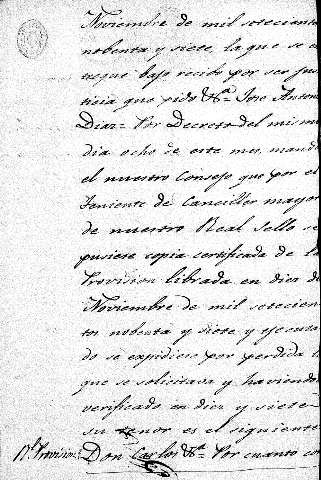 Noviembre de mil setecient
nobenta y siete, la que se e
xeque bajo recibo por ser jus
ticia que pido &ª Jose Anton
Diaz= Por Decreto del mismo
dia ocho de este mes, mando
el nuestro Consejo que por el
Teniente de Canciller mayor
de nuestro Real Sello se
pusiese copia certificada de la
Provision librada en diez de
Noviembre de mil setecien
tos nobenta y siete y
do se expidiese por perdida l
que se solicitava y haviendo
verificado en diez y siete
su tenor es el siguiente
Rl. Provision Don Carlos &ª Por cuanto con